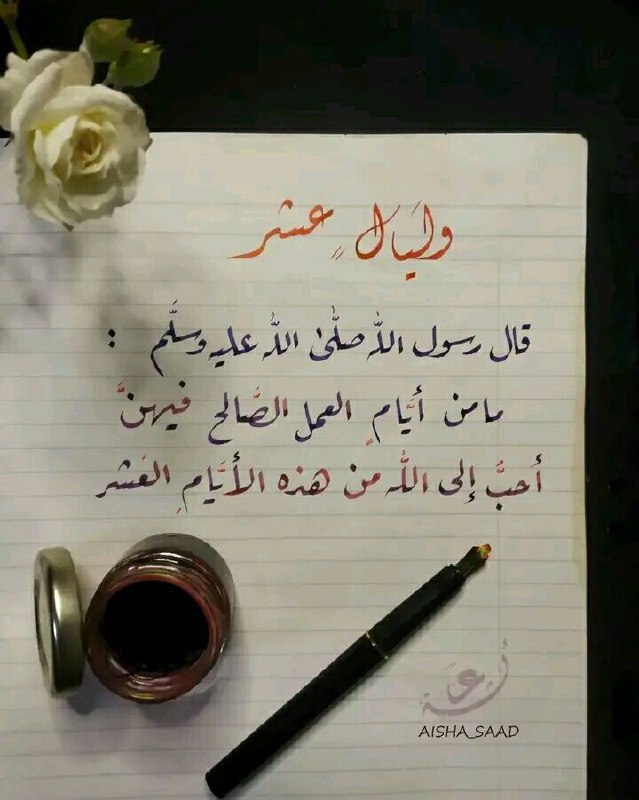 وَلَيَالٍ عشر
قال رسول اللّٰه صلّى اللّٰه عليه وسلَّم :
ما من أيَّامٍ العمل الصَّالح فيهنَّ
أحبُّ إلى اللّٰه من هذه الأيَّامِ العَشر
AISHA_SAAD